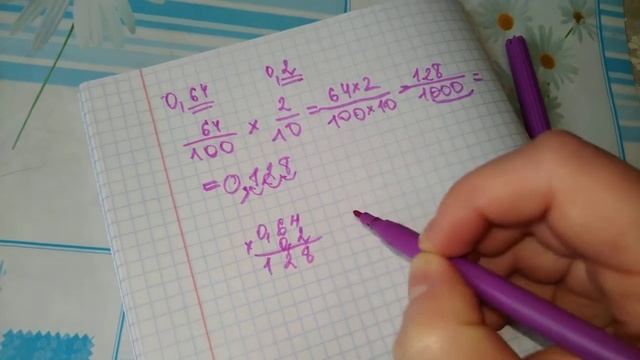 0,64 0,2
64/100 × 2/10 = 64×2/100×10 = 128/1000 =
= 0,128
× 0,64
0,2
128